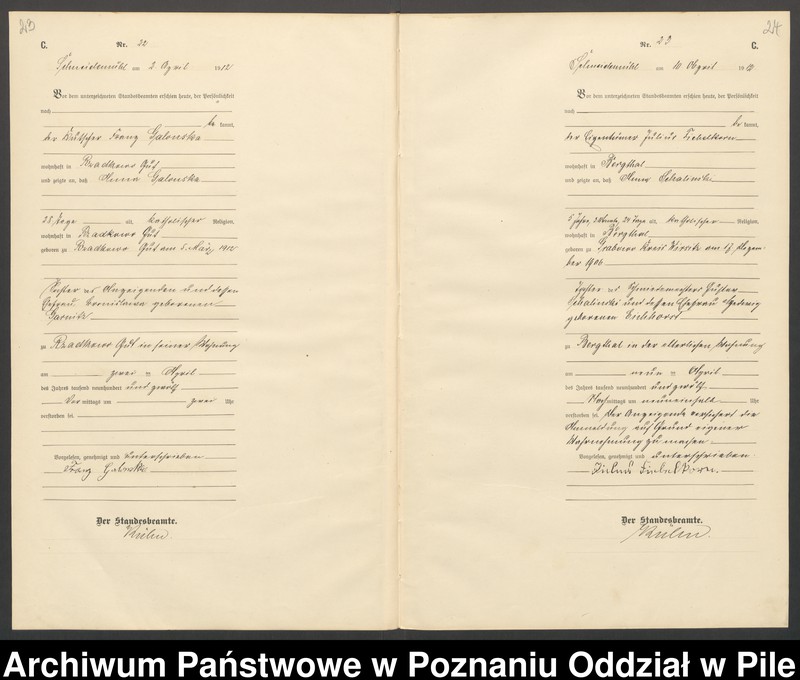 23
C.
Nr. 22
Schneidemühl am 2 April 1912
Vor dem unterzeichneten Standesbeamten erschien heute, der Persönlichkeit
nach
be kannt,
der Kutscher Franz Galonska
wohnhaft in Gut
und zeigte an, daß Galonska
28 Tage alt, katholischer Religion,
wohnhaft in Gut
geboren zu Gut am 5. März 1912
Tochter des Anzeigenden und dessen
Ehefrau Bronislawa geborenen
zu Gut in seiner Wohnung
am zwei ten April
des Jahres tausend neunhundert und zwölf
Vor mittags um zwei Uhr
verstorben sei.
Vorgelesen, genehmigt und unterschrieben
Franz Galonska
Der Standesbeamte.
24
Nr. 23
C.
Schneidemühl am 10 April 1912
Vor dem unterzeichneten Standesbeamten erschien heute, der Persönlichkeit
nach
be kannt,
der Eigentümer Julius
wohnhaft in Bergthal
und zeigte an, daß
5 Jahre, 24 Tage alt, katholischer Religion,
wohnhaft in Bergthal
geboren zu Kreis Wirsitz am Dezem-
ber 1906
Tochter des Schmiedemeisters
und dessen Ehefrau Hedwig
geborenen
zu Bergthal in der elterlichen Wohnung
am neun ten April
des Jahres tausend neunhundert und zwölf
Nach mittags um neuneinhalb Uhr
verstorben sei. Der Anzeigende versichert die
Anmeldung auf Grund eigener
Wahrnehmung zu machen
Vorgelesen, genehmigt und unterschrieben
Julius
Der Standesbeamte.
Archiwum Państwowe w Poznaniu Oddział w Pile